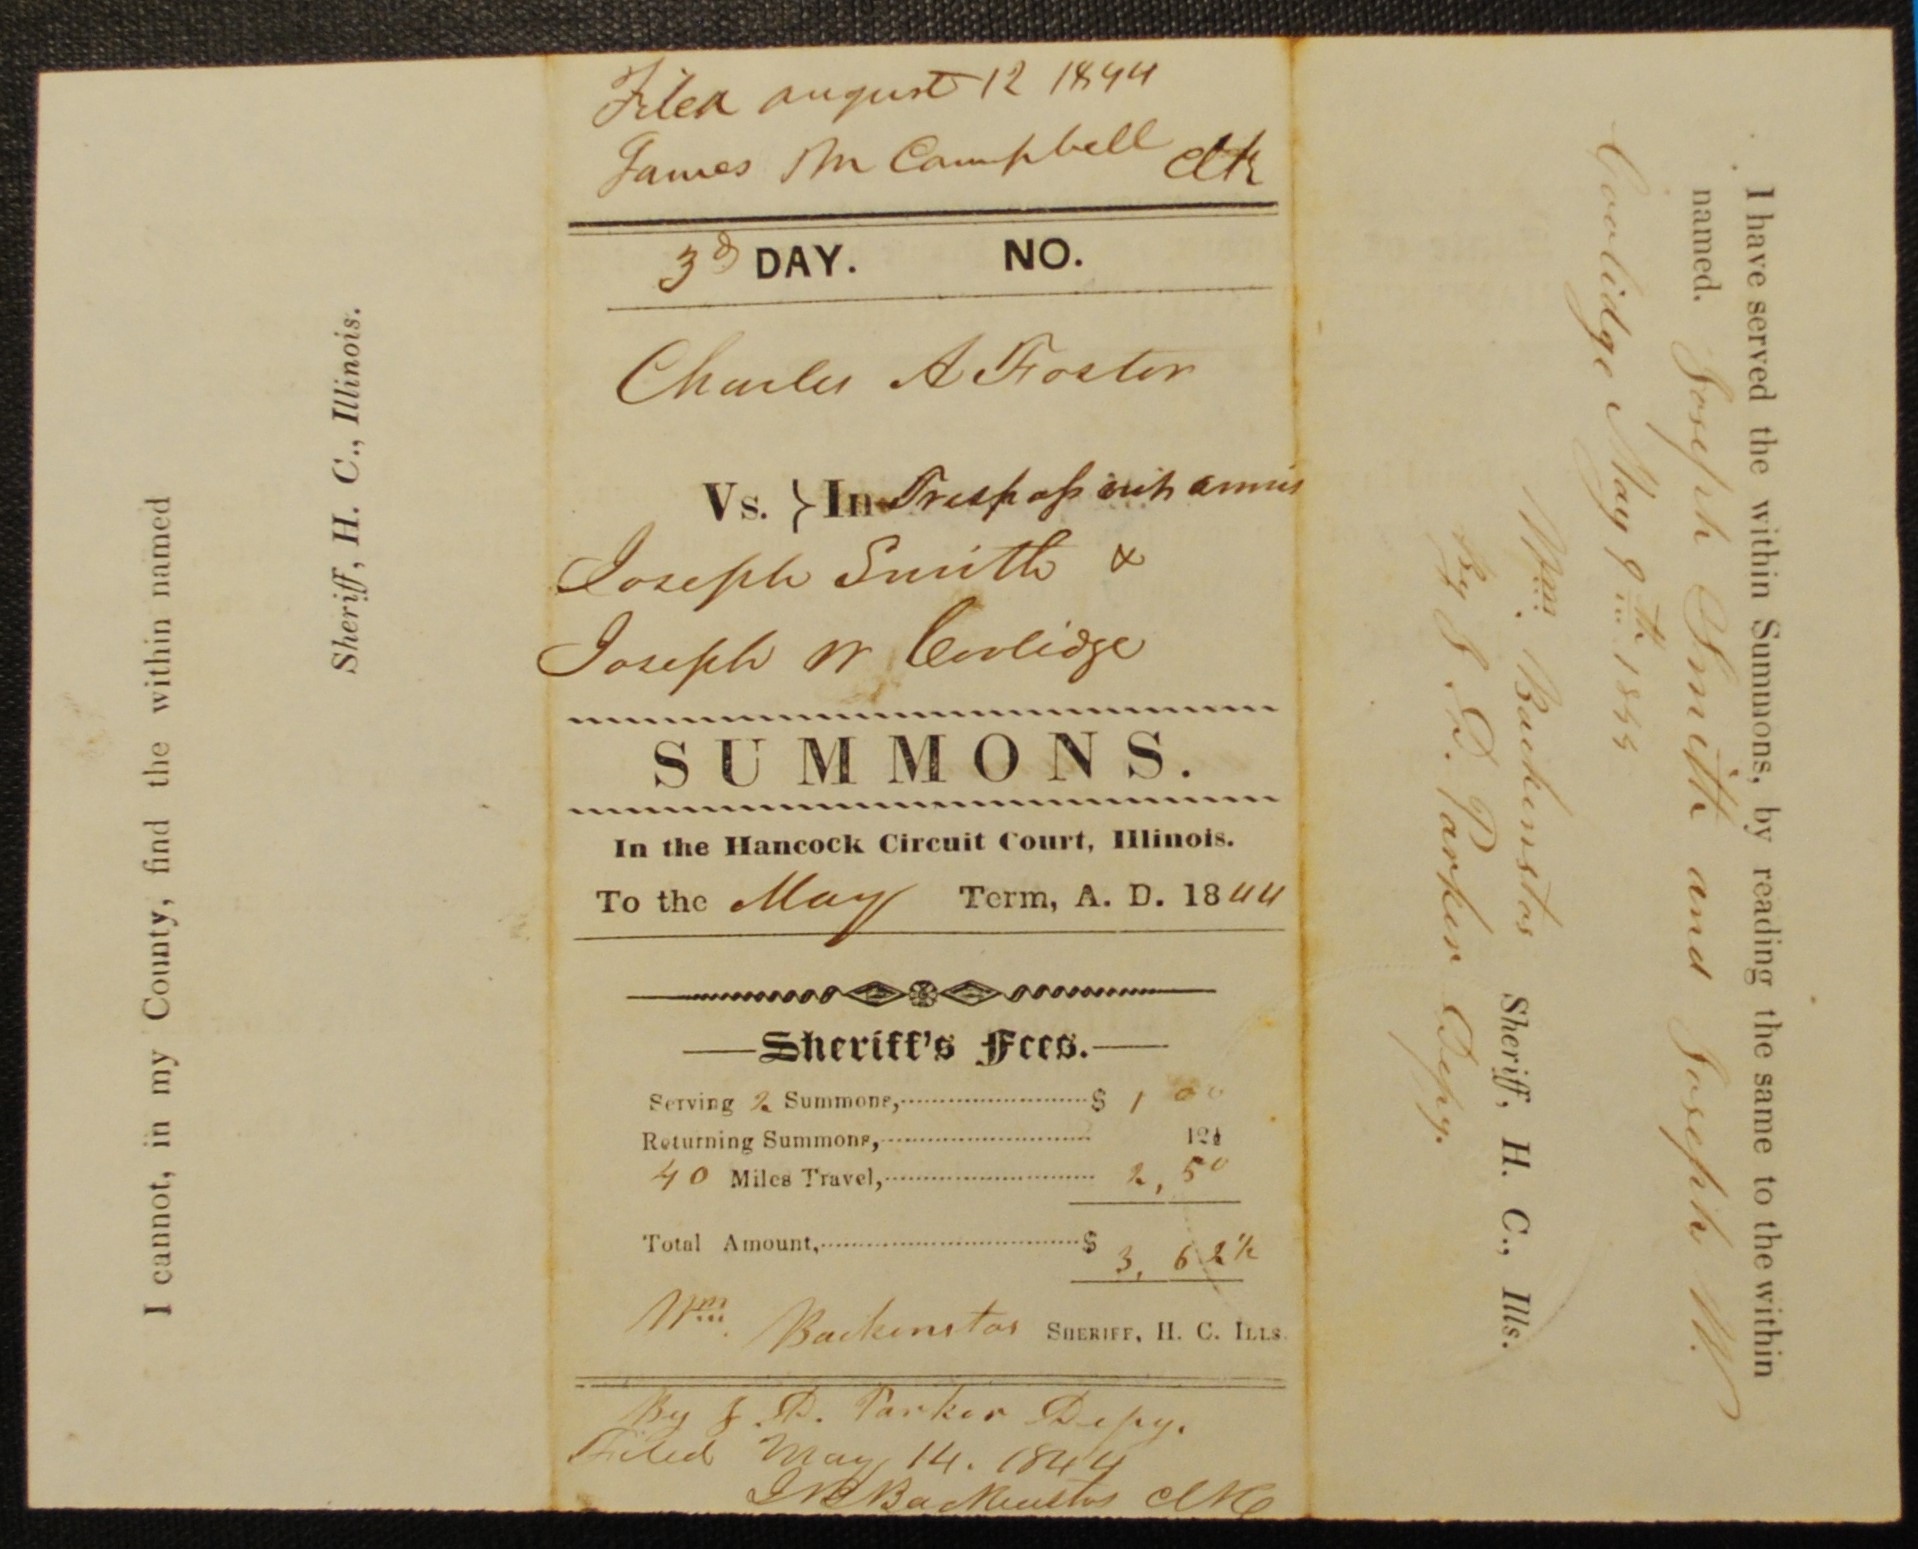 I cannot, in my County, find the within named
Sheriff, H. C., Illinois.
Filed august 12 1844
James M Campbell Clk
3d DAY. NO.
Charles A Foster
Vs. } In Trespass vi et armis
Joseph Smith &
Joseph W Coolidge
SUMMONS.
In the Hancock Circuit Court, Illinois.
To the May Term, A. D. 1844
Sheriff's Fees.
Serving 2 Summons, $ 1 00
Returning Summons, 12½
40 Miles Travel, 2, 50
Total Amount, $ 3, 62½
Wm. Backenstos SHERIFF, H. C. ILLS.
By J. D. Parker Depy.
Filed May 14. 1844
J B Backenstos Clk
I have served the within Summons, by reading the same to the within
named. Joseph Smith and Joseph W.
Coolidge May 9th 1844
Wm. Backenstos Sheriff, H. C., Ills.
By J. D. Parker Depy.